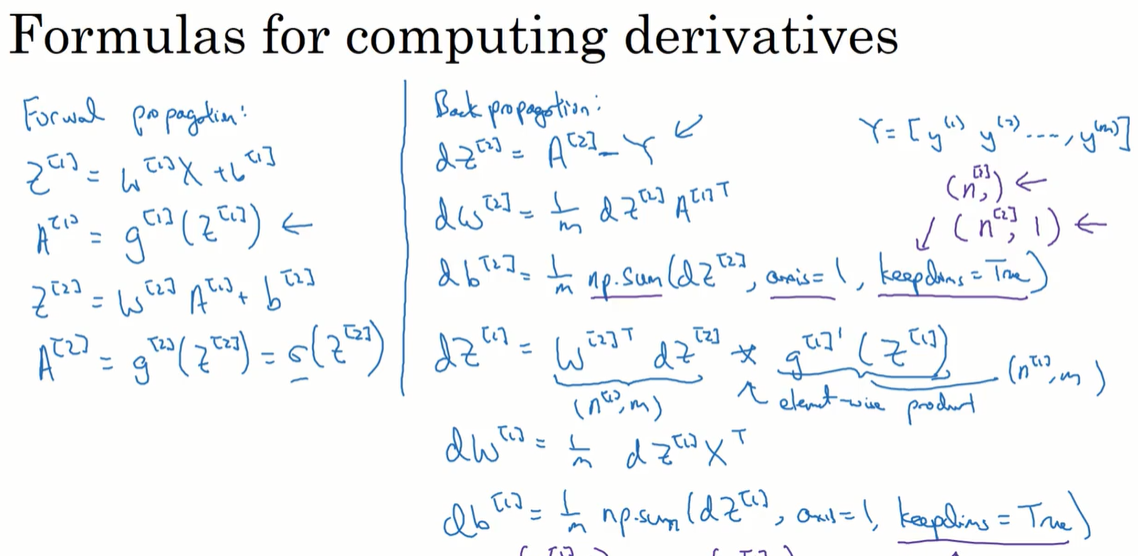 Formulas for computing derivatives
Forwal propagation:
Z^[1] = W^[1]X + b^[1]
A^[1] = g^[1](Z^[1]) ←
Z^[2] = W^[2] A^[1] + b^[2]
A^[2] = g^[2](Z^[2]) = σ(Z^[2])
Back propagation:
dZ^[2] = A^[2] - Y ↙
dW^[2] = 1/m dZ^[2] A^[1]T
db^[2] = 1/m np.sum(dZ^[2], axis=1, keepdims=True)
dZ^[1] = W^[2]T dZ^[2] * g^[1]'(Z^[1])
(n^[1], m) ↖ element-wise product (n^[1], m)
dW^[1] = 1/m dZ^[1] X^T
db^[1] = 1/m np.sum(dZ^[1], axis=1, keepdims=True)
Y = [y^(1) y^(2) ...., y^(m)]
(n^[2],) ←
↓ (n^[2], 1) ←